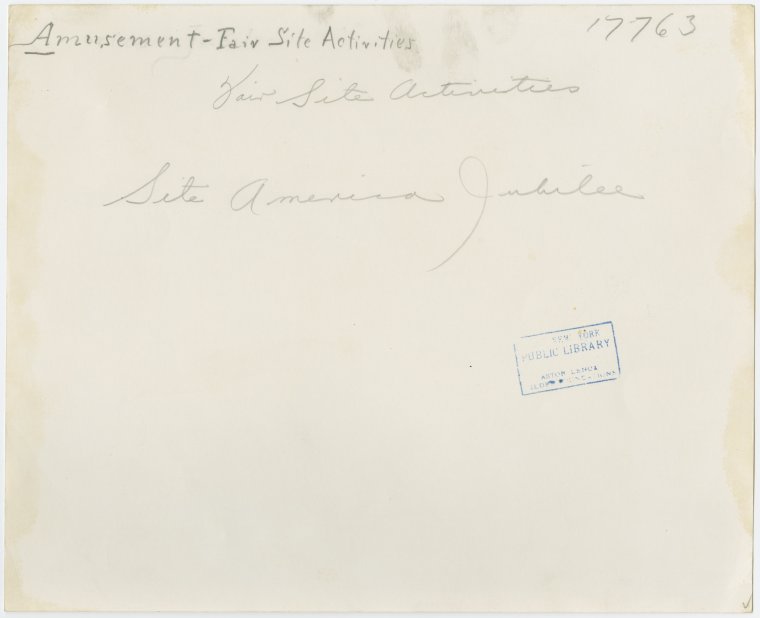 Amusement - Fair Site Activities
17763
Fair Site Activities
Site America Jubilee
NEW YORK
PUBLIC LIBRARY
ASTOR LENOX
TILDEN FOUNDATIONS